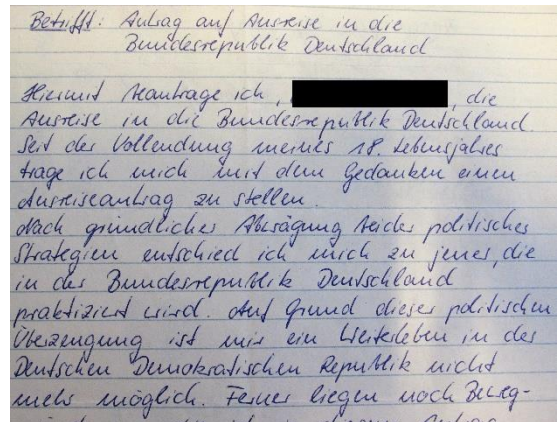 Betrifft: Antrag auf Ausreise in die
Bundesrepublik Deutschland
Hiermit beantrage ich, , die
Ausreise in die Bundesrepublik Deutschland.
Seit der Vollendung meines 18. Lebensjahres
trage ich mich mit dem Gedanken einen
Ausreiseantrag zu stellen.
Nach gründlicher Abwägung beider politischer
Strategien entschied ich mich zu jener, die
in der Bundesrepublik Deutschland
praktiziert wird. Auf Grund dieser politischen
Überzeugung ist mir ein Weiterleben in der
Deutschen Demokratischen Republik nicht
mehr möglich. Ferner liegen noch Beweg-